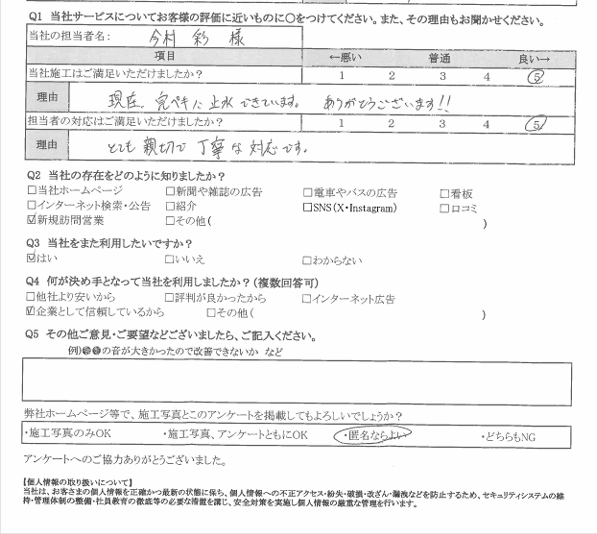 Q1 当社サービスについてお客様の評価に近いものに〇をつけてください。また、その理由もお聞かせください。
当社の担当者名: 今村 彩 様
項目 ←悪い 普通 良い→
当社施工はご満足いただけましたか? 1 2 3 4 5
理由 現在、完ペキに止水できています。 ありがとうございます!!
担当者の対応はご満足いただけましたか? 1 2 3 4 5
理由 とても親切で丁寧な対応です。
Q2 当社の存在をどのように知りましたか?
□当社ホームページ □新聞や雑誌の広告 □電車やバスの広告 □看板
□インターネット検索・公告 □紹介 □SNS(X・Instagram) □口コミ
☑新規訪問営業 □その他( )
Q3 当社をまた利用したいですか?
☑はい □いいえ □わからない
Q4 何が決め手となって当社を利用しましたか?(複数回答可)
□他社より安いから □評判が良かったから □インターネット広告
☑企業として信頼しているから □その他( )
Q5 その他ご意見・ご要望などございましたら、ご記入ください。
例)●●の音が大きかったので改善できないか など
弊社ホームページ等で、施工写真とこのアンケートを掲載してもよろしいでしょうか?
・施工写真のみOK ・施工写真、アンケートともにOK ・匿名ならよい ・どちらもNG
アンケートへのご協力ありがとうございました。
【個人情報の取り扱いについて】
当社は、お客さまの個人情報を正確かつ最新の状態に保ち、個人情報への不正アクセス・紛失・破損・改ざん・漏洩などを防止するため、セキュリティシステムの維
持・管理体制の整備・社員教育の徹底等の必要な措置を講じ、安全対策を実施し個人情報の厳重な管理を行います。